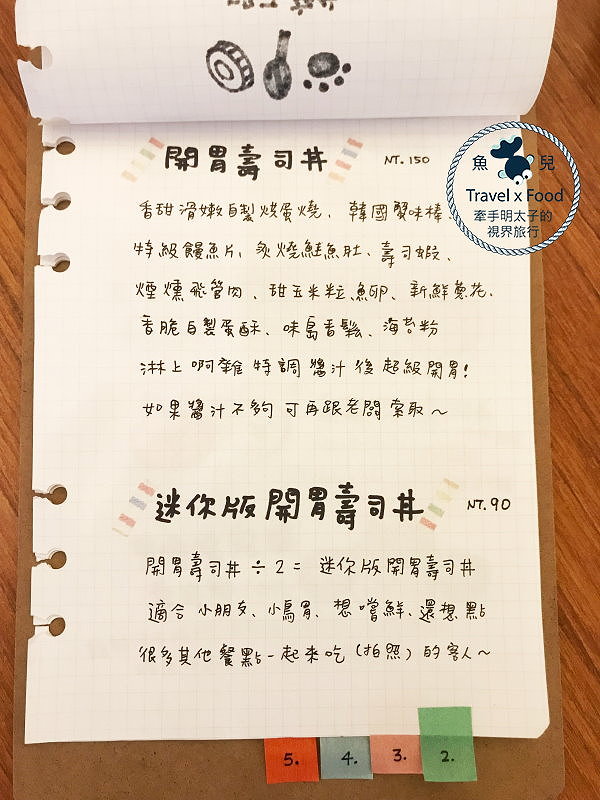 開胃壽司丼 NT. 150
魚兒
Travel x Food
牽手明太子的
視界旅行
香甜滑嫩自製烘蛋燒、韓國蟹味棒
特級饅魚片、炙燒鮭魚肚、壽司蝦、
煙燻飛管肉、甜玉米粒、魚卵、新鮮蔥花、
香脆自製蛋酥、味島香鬆、海苔粉
淋上啊雜特調醬汁後超級開胃!
如果醬汁不夠可再跟老闆索取~
迷你版開胃壽司丼 NT. 90
開胃壽司丼÷2=迷你版開胃壽司丼
適合小朋友、小鳥胃、想嚐鮮、還想點
很多其他餐點一起來吃(拍照)的客人~
5.
4.
3.
2.